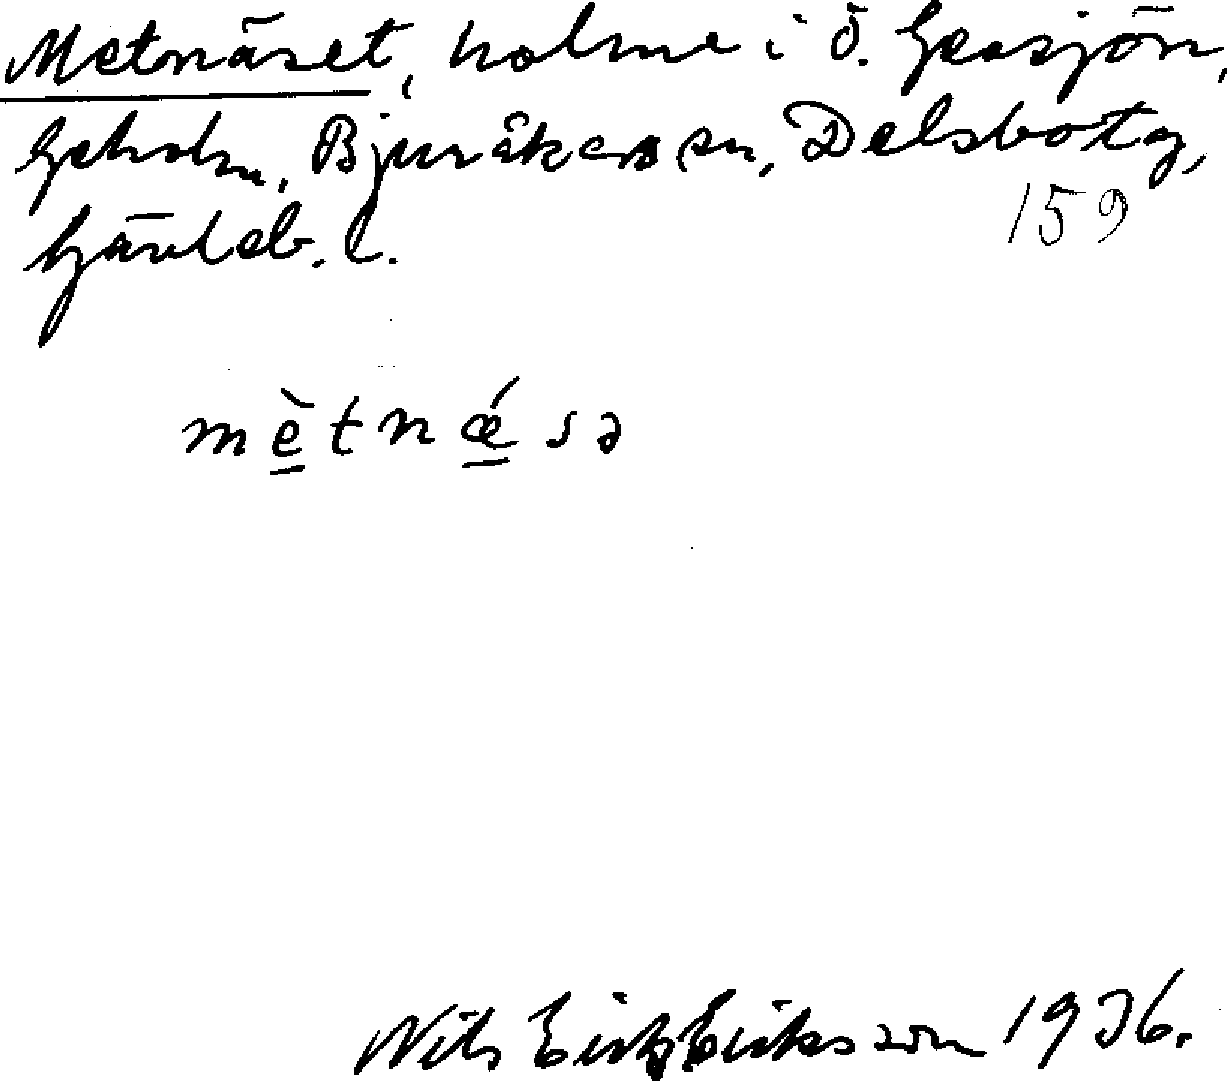 Metnäset, holme i Ö. Gersjön,
Bjuråkers sn, Delsbo tg,
Gävleb. l.
159
mètnǽsə
Nils Erik Eriksson 1936.